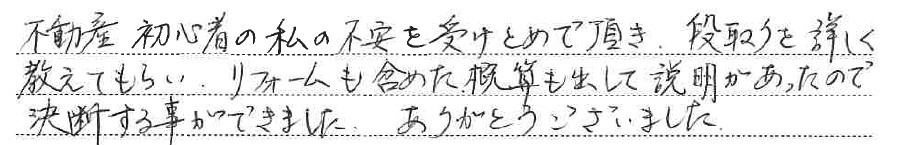 不動産初心者の私の不安を受けとめて頂き、段取りを詳しく
教えてもらい、リフォームも含めた概算も出して説明があったので
決断する事ができました。ありがとうございました。